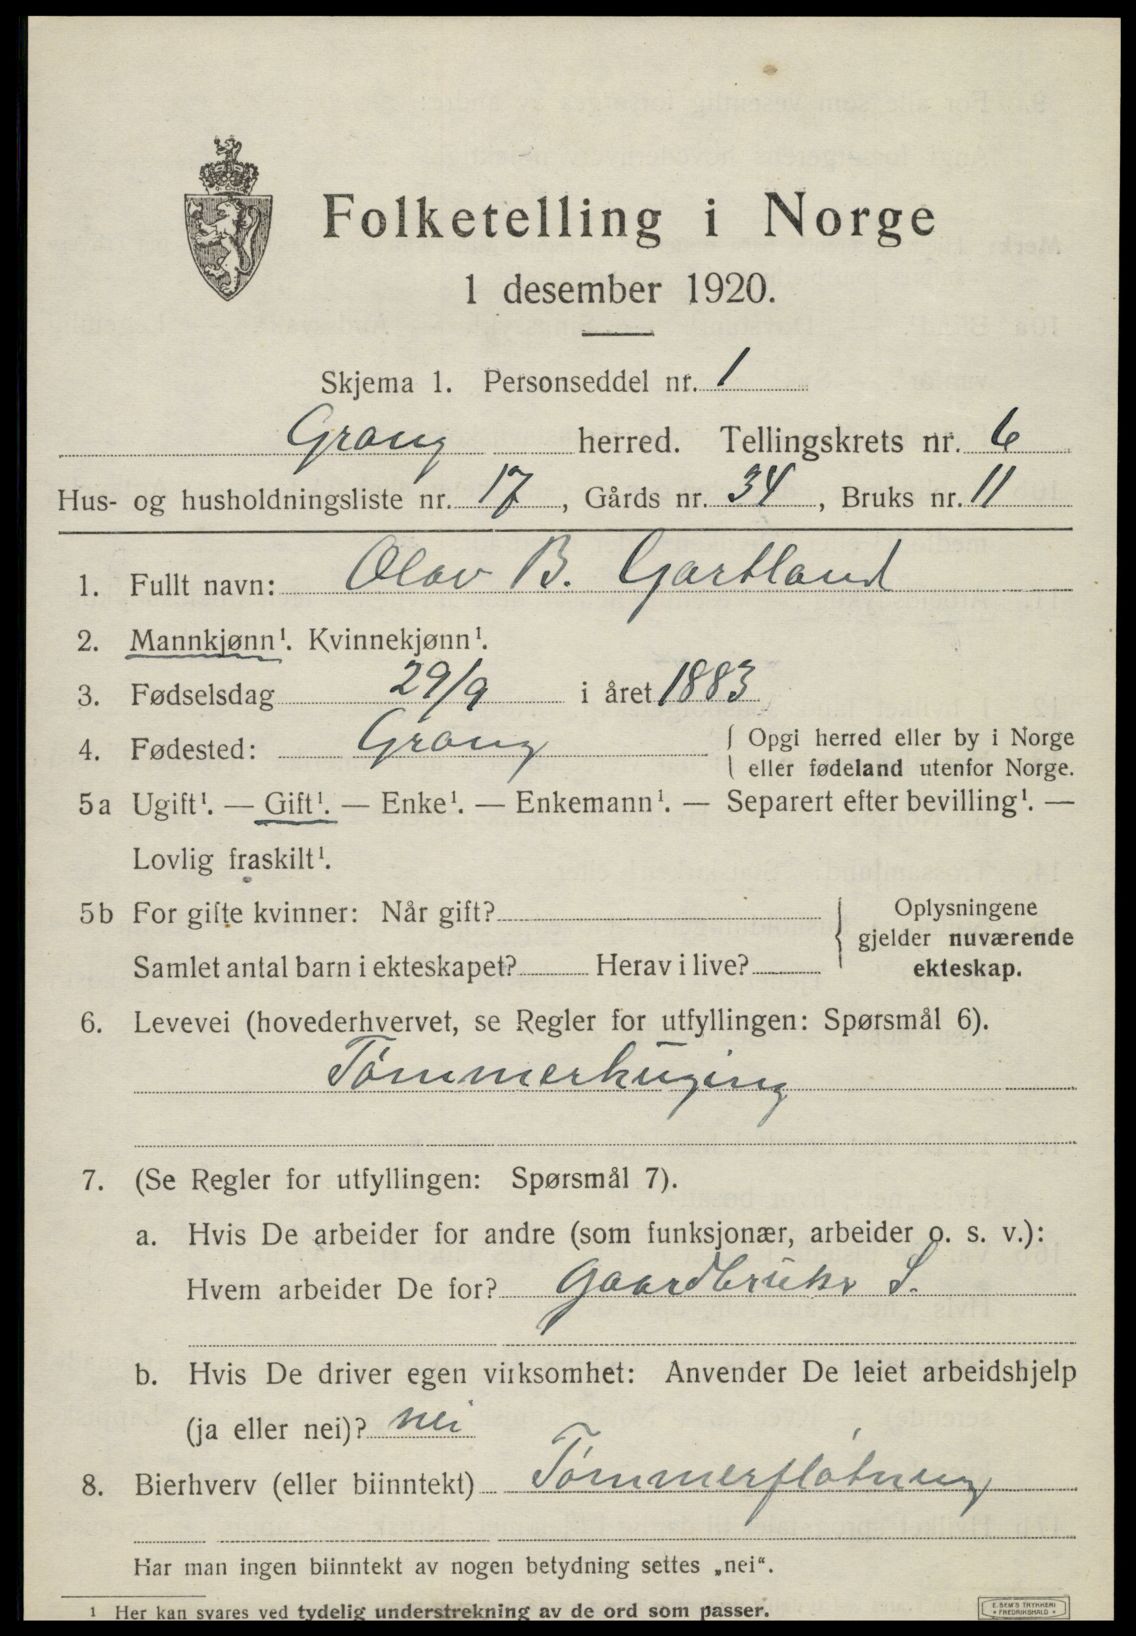 Folketelling i Norge
1 desember 1920.
Skjema 1. Personseddel nr. 1
Grong herred. Tellingskrets nr. 6
Hus- og husholdningsliste nr. 17, Gårds nr. 34, Bruks nr. 11
1. Fullt navn: Olav B. Gartland
2. Mannkjønn¹. Kvinnekjønn¹.
3. Fødselsdag 29/9 i året 1883
4. Fødested: Grong { Opgi herred eller by i Norge
eller fødeland utenfor Norge.
5a Ugift¹. — Gift¹. — Enke¹. — Enkemann¹. — Separert efter bevilling¹. —
Lovlig fraskilt¹.
5b For gifte kvinner: Når gift? { Oplysningene
gjelder nuværende
Samlet antal barn i ekteskapet? Herav i live? ekteskap.
6. Levevei (hovederhvervet, se Regler for utfyllingen: Spørsmål 6).
Tømmerhuging
7. (Se Regler for utfyllingen: Spørsmål 7).
a. Hvis De arbeider for andre (som funksjonær, arbeider o. s. v.):
Hvem arbeider De for? Gaardbruker S.
b. Hvis De driver egen virksomhet: Anvender De leiet arbeidshjelp
(ja eller nei)? nei
8. Bierhverv (eller biinntekt) Tømmerfløtning
Har man ingen biinntekt av nogen betydning settes „nei“.
¹ Her kan svares ved tydelig understrekning av de ord som passer.
E. SEM'S TRYKKERI
• FREDRIKSHALD •